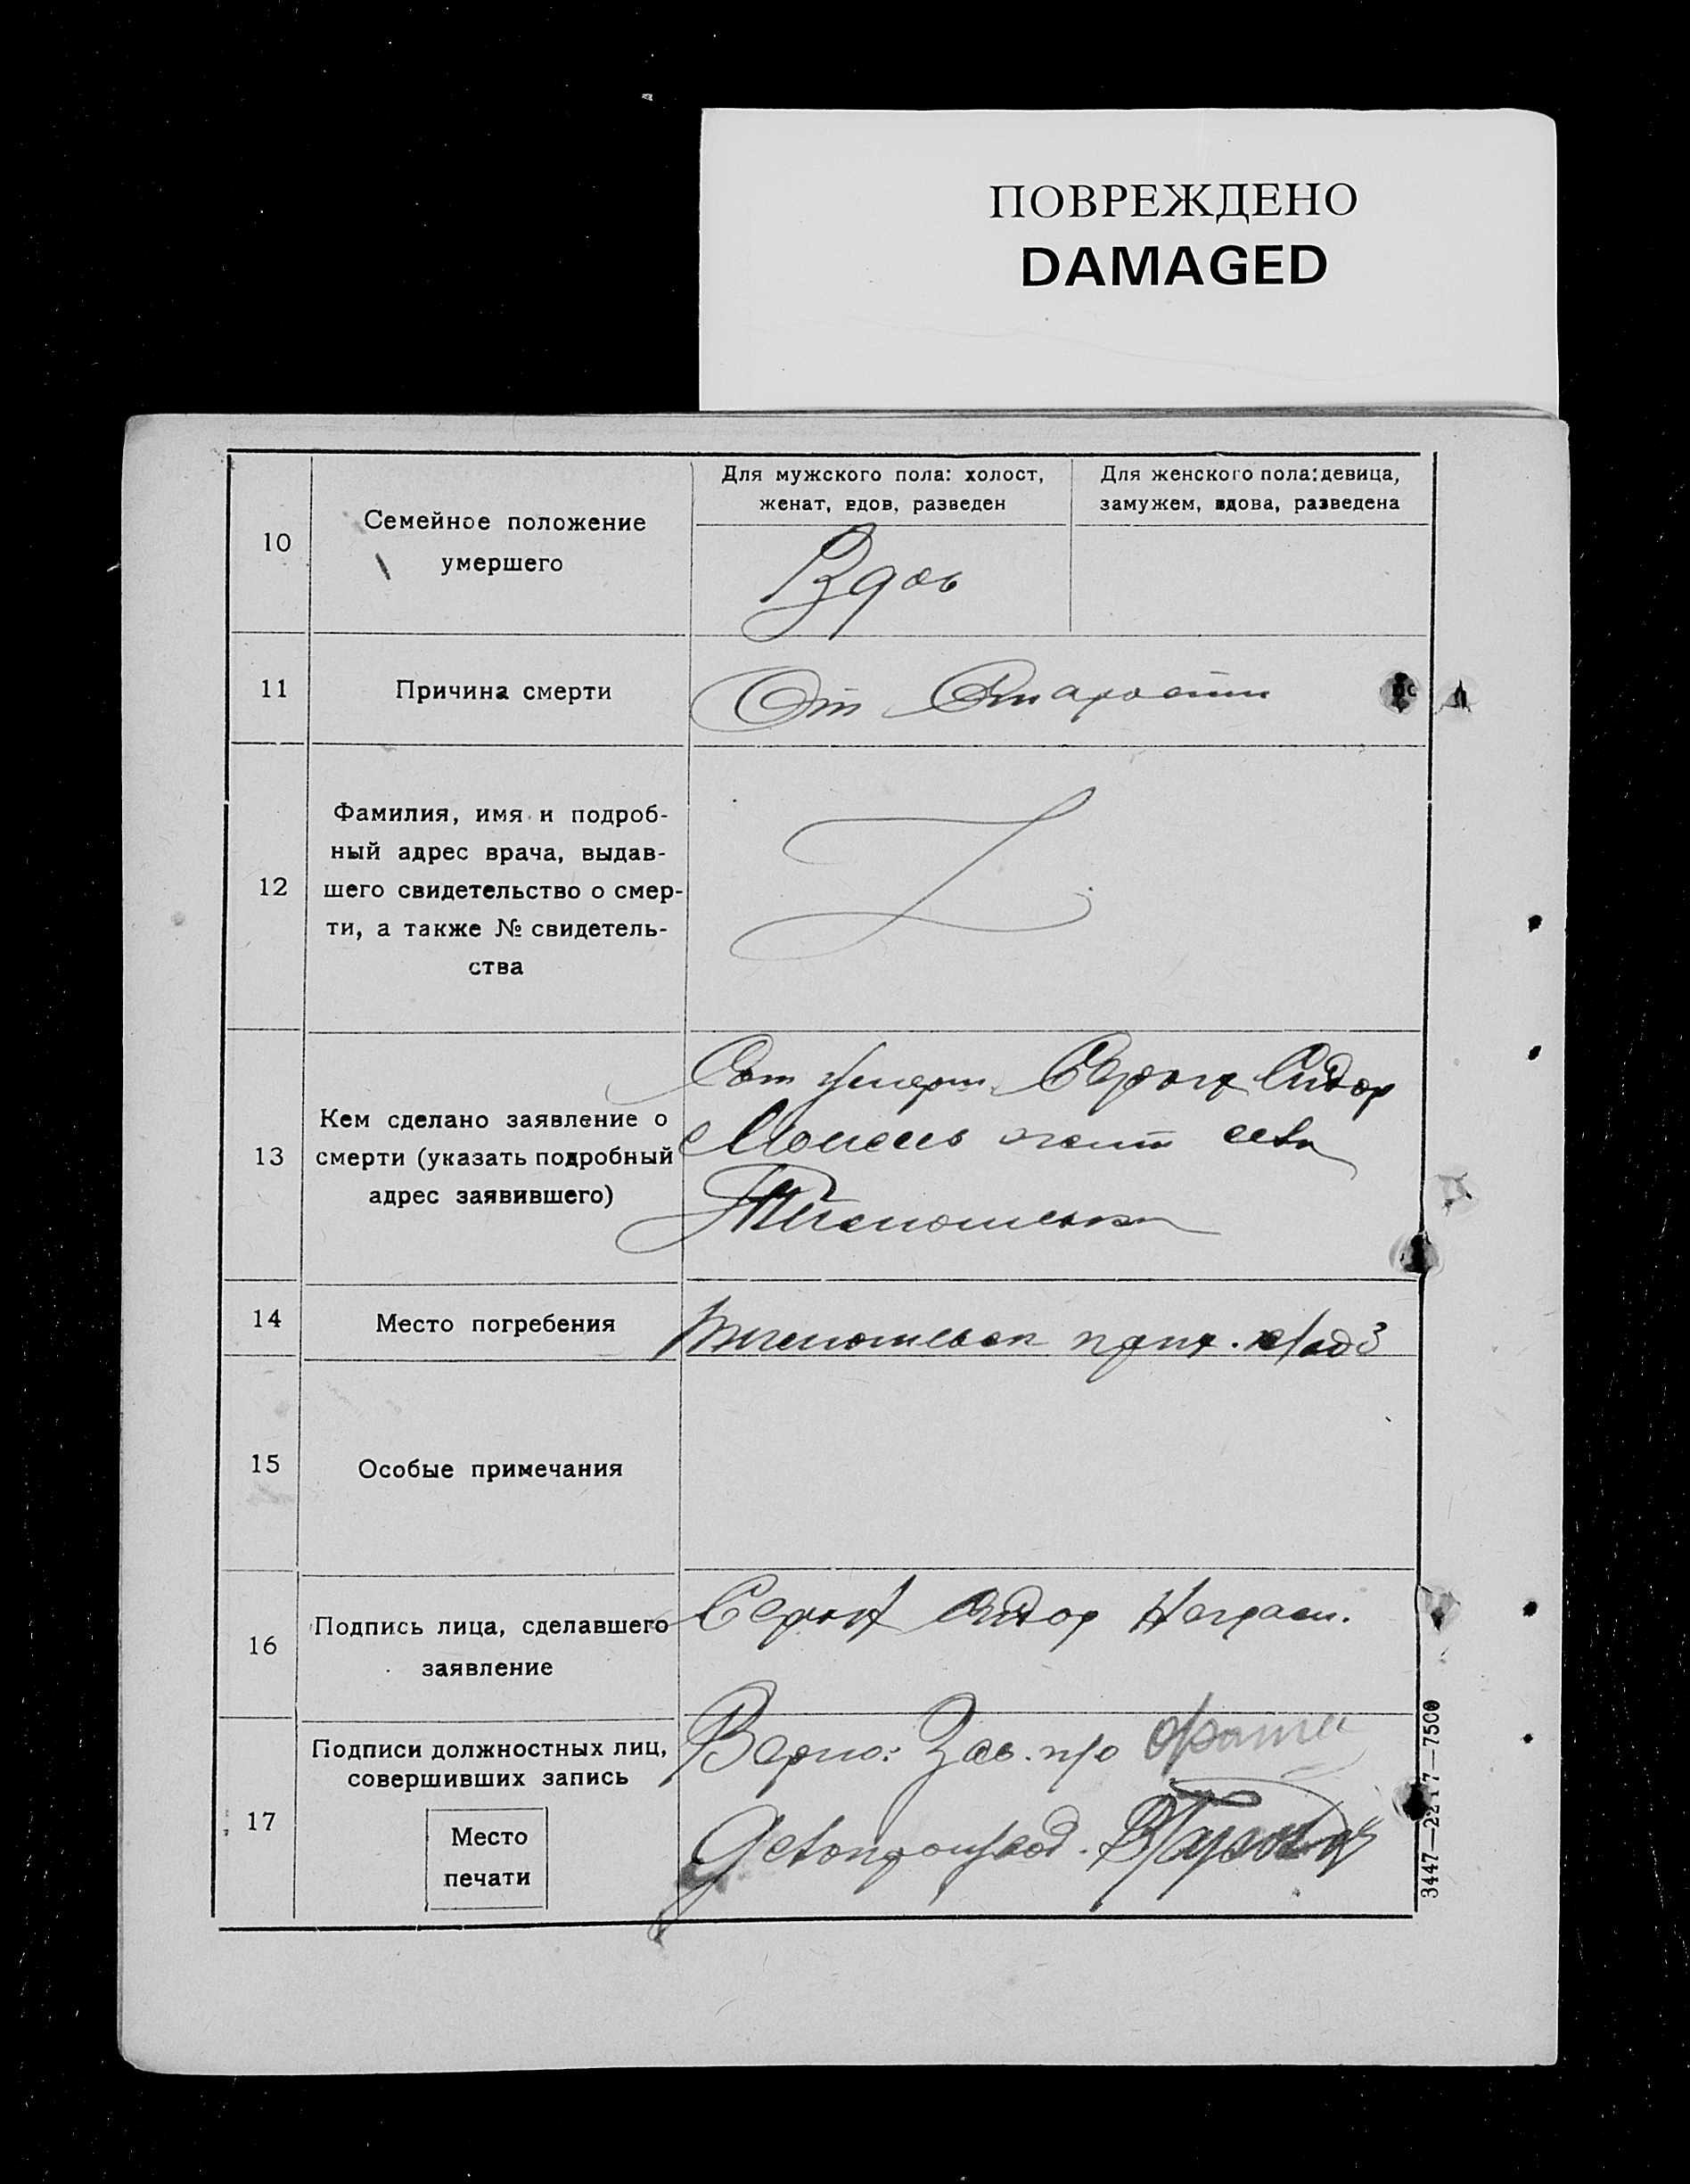 ПОВРЕЖДЕНО
DAMAGED
10
Семейное положение
умершего
Для мужского пола: холост,
женат, вдов, разведен
Для женского пола: девица,
замужем, вдова, разведена
Вдов
11
Причина смерти
От Старости
12
Фамилия, имя и подроб-
ный адрес врача, выдав-
шего свидетельство о смер-
ти, а также № свидетель-
ства
13
Кем сделано заявление о
смерти (указать подробный
адрес заявившего)
умерш. Сидор
жит села
14
Место погребения
прих. клад
15
Особые примечания
16
Подпись лица, сделавшего
заявление
Сидор Неграм.
17
Подписи должностных лиц,
совершивших запись
Место
печати
Верно: Зав. п/о
3447—2277—7500